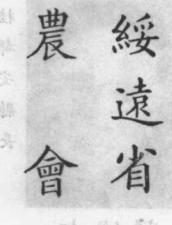 綏遠省
農會